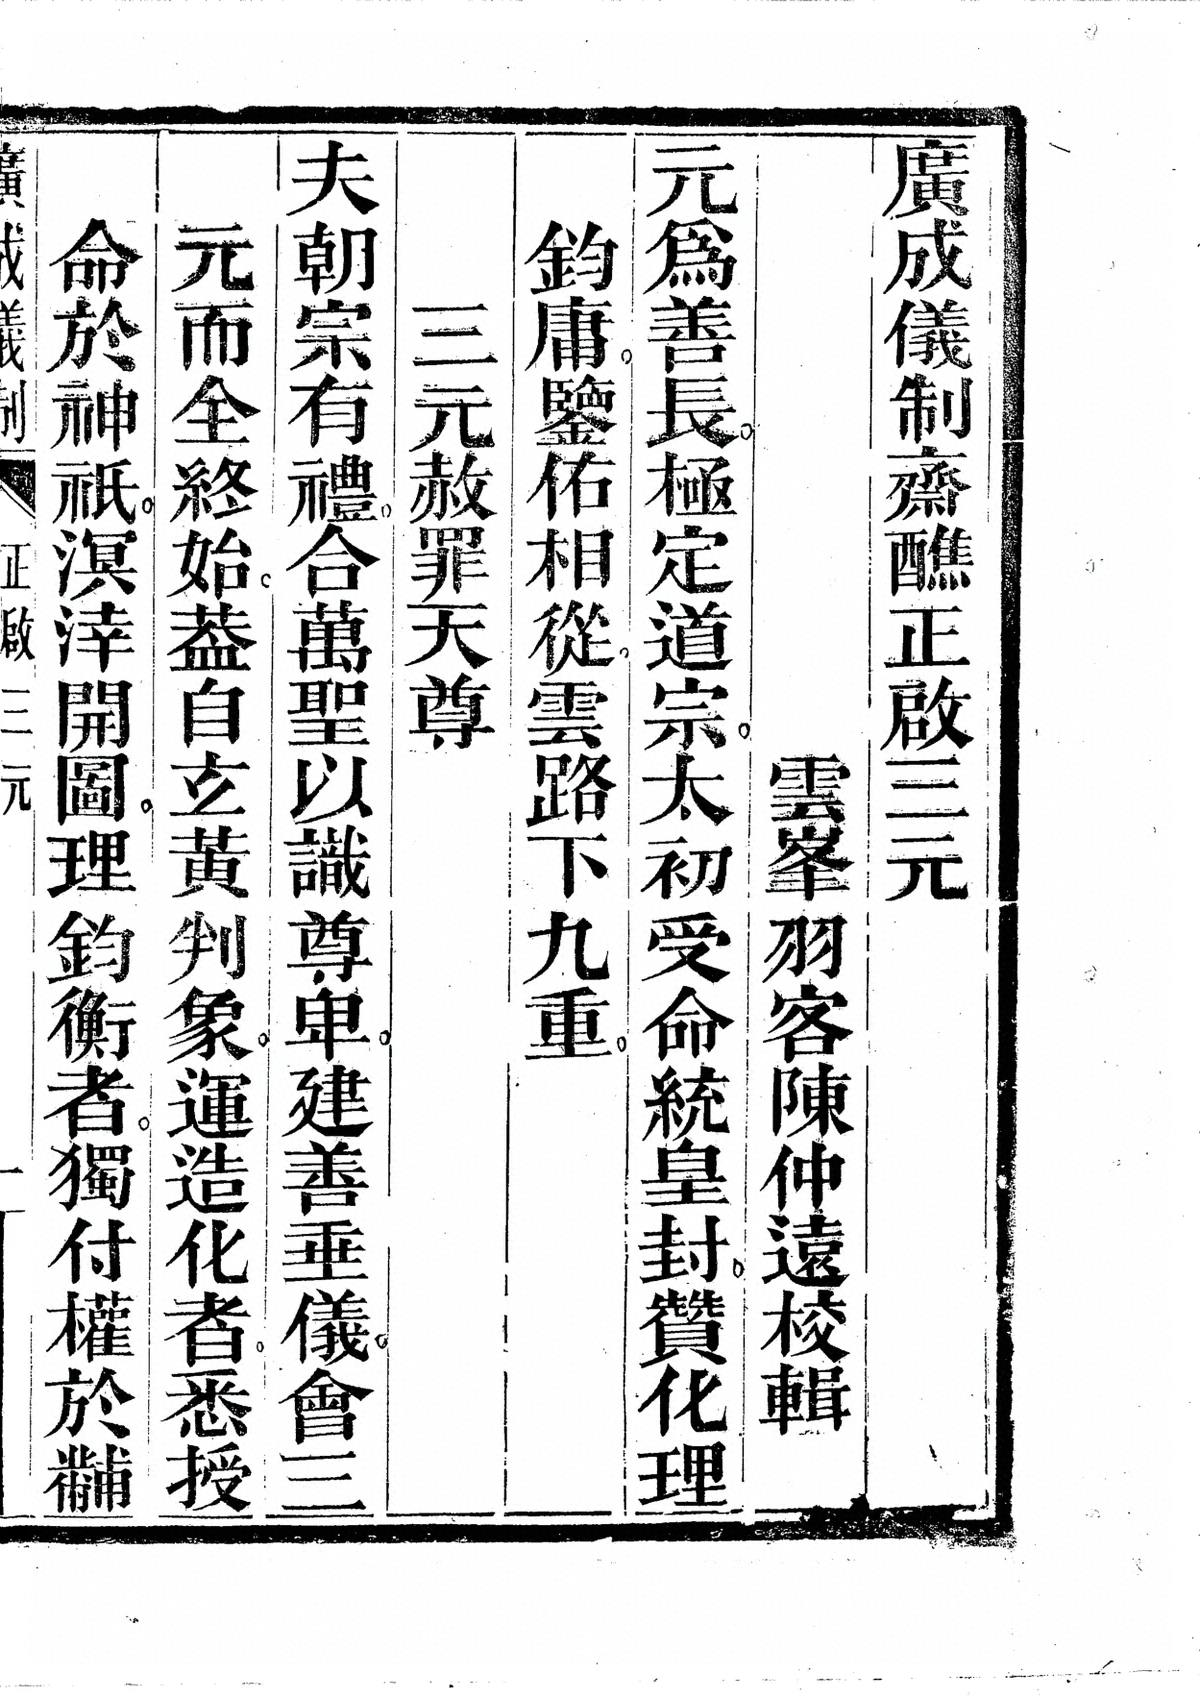 廣成儀制齋醮正啟三元
雲峯羽客陳仲遠校輯
元爲善長。極定道宗。太初受命統皇封。贊化理
鈞庸。鑒佑相從。雲路下九重。
三元赦罪天尊
夫朝宗有禮。合萬聖以識尊卑。建善垂儀。會三
元而全終始。葢自玄黃判象。運造化者。悉授
命於神祇。溟涬開圖。理鈞衡者。獨付權於黼
廣成儀制 正啟三元 一